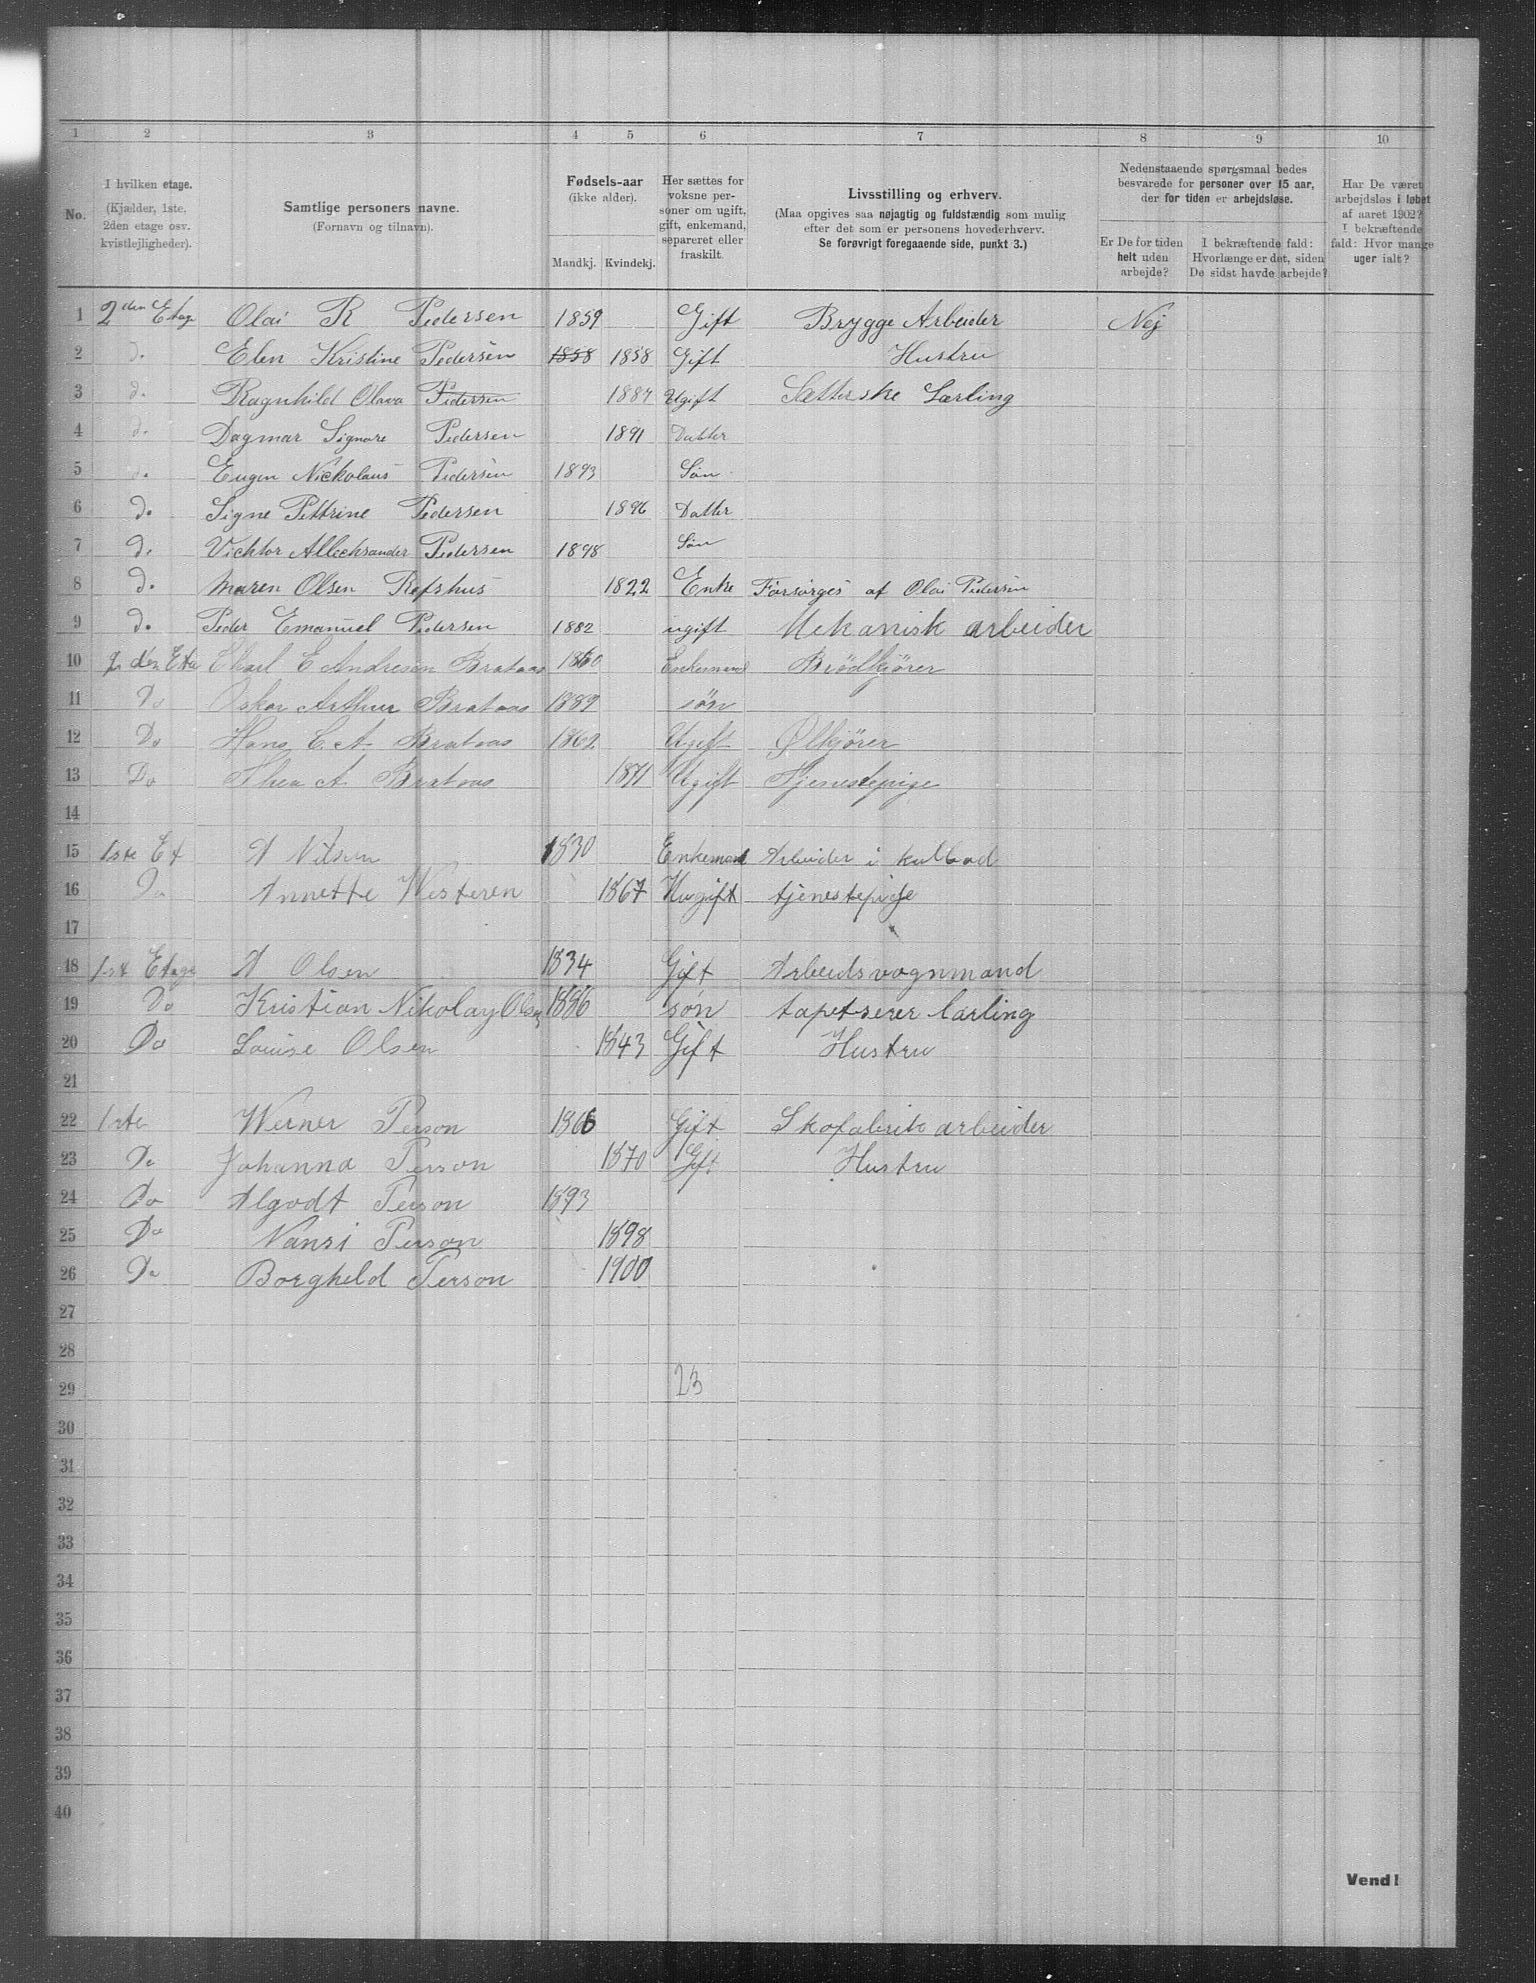 1 2 3 4 5 6 7 8 9 10
No.
I hvilken etage. (Kjælder, 1ste. 2den etage osv. kvistlejligheder).
Samtlige personers navne. (Fornavn og tilnavn).
Fødsels-aar (ikke alder).
Mandkj. Kvindekj.
Her sættes for voksne personer om ugift, gift, enkemand, separeret eller fraskilt.
Livsstilling og erhverv. (Maa opgives saa nøjagtig og fuldstændig som mulig efter det som er personens hovederhverv. Se forøvrigt foregaaende side, punkt 3.)
Nedenstaaende spørgsmaal bedes besvarede for personer over 15 aar, der for tiden er arbejdsløse.
Er De for tiden helt uden arbejde?
I bekræftende fald: Hvorlænge er det, siden De sidst havde arbejde?
Har De været arbejdsløs i løbet af aaret 1902? I bekræftende fald: Hvor mange uger ialt?
1 2den Etage Olai R Pedersen 1859 Gift Brygge Arbeider Nej
2 d. Elen Kristine Pedersen 1858 1858 Gift Hustru
3 d. Ragnhild Olava Pedersen 1887 Ugift Sætterske Lærling
4 d. Dagmar Signore Pedersen 1891 Datter
5 d. Eugen Nickolaus Pedersen 1893 Søn
6 d. Signe Pettrine Pedersen 1896 Datter
7 d. Vicktor Alleksander Pedersen 1898 Søn
8 d. Maren Olsen Refshus 1822 Enke Forsørges af Olai Pedersen
9 d. Peder Emanuel Pedersen 1882 ugift Mekanisk arbeider
10 2 den Eta Charl E Andresen Brataas 1860 Enkemand Brödkjörer
11 Do Oskar Arthur Brataas 1889 søn
12 Do Hans C. A. Brataas 1862 Ugift Ølkjører
13 Do Thea A Brataas 1871 Ugift Tjenestepige
14
15 1ste Et A Nilsen 1830 Enkemand Arbeider i kulbod
16 Do Annette Westeren 1867 Uugift tjenestepige
17
18 1st Etage A Olsen 1834 Gift Arbeidsvognmand
19 Do Kristian Nikolay Olsen 1886 søn tapetserer lærling
20 Do Louise Olsen 1843 Gift Hustru
21
22 1ste Werner Person 1866 Gift Skofabrik arbeider
23 Do Johanna Person 1870 Gift Hustru
24 Do Algodt Person 1893
25 Do Nansi Person 1898
26 Do Borgheld Person 1900
27
28
29 23
30
31
32
33
34
35
36
37
38
39
40
Vend!